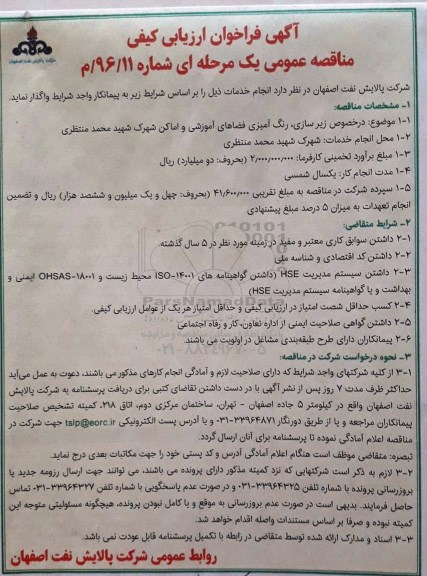 آگهی فراخوان ارزیابی کیفی
مناقصه عمومی یک مرحله ای شماره ۹۶/۱۱/م
شرکت پالایش نفت اصفهان
شرکت پالایش نفت اصفهان در نظر دارد انجام خدمات ذیل را بر اساس شرایط زیر به پیمانکار واجد شرایط واگذار نماید.
۱- مشخصات مناقصه:
۱-۱ موضوع: درخصوص زیر سازی، رنگ آمیزی فضاهای آموزشی و اماکن شهرک شهید محمد منتظری
۱-۲ محل انجام خدمات: شهرک شهید محمد منتظری
۱-۳ مبلغ برآورد تخمینی کارفرما: ۲/۰۰۰/۰۰۰/۰۰۰ (بحروف: دو میلیارد) ریال
۱-۴ مدت انجام کار: یکسال شمسی
۱-۵ سپرده شرکت در مناقصه به مبلغ تقریبی ۴۱/۶۰۰/۰۰۰ (بحروف: چهل و یک میلیون و ششصد هزار) ریال و تضمین
انجام تعهدات به میزان ۵ درصد مبلغ پیشنهادی
۲- شرایط متقاضی:
۲-۱ داشتن سوابق کاری معتبر و مفید در زمینه مورد نظر در ۵ سال گذشته.
۲-۲ داشتن کد اقتصادی و شناسه ملی
۲-۳ داشتن سیستم مدیریت HSE (داشتن گواهینامه های ISO-۱۴۰۰۱ محیط زیست و OHSAS-۱۸۰۰۱ ایمنی و
بهداشت و یا گواهینامه سیستم مدیریت HSE)
۲-۴ کسب حداقل شصت امتیاز در ارزیابی کیفی و حداقل امتیاز هر یک از عوامل ارزیابی کیفی.
۲-۵ داشتن گواهی صلاحیت ایمنی از اداره تعاون، کار و رفاه اجتماعی
۲-۶ پیمانکاران دارای طرح طبقه‌بندی مشاغل در اولویت می باشند.
۳- نحوه درخواست شرکت در مناقصه:
۳-۱ از کلیه شرکتهای واجد شرایط که دارای صلاحیت لازم و آمادگی انجام کارهای مذکور می باشند، دعوت به عمل می‌آید
حداکثر ظرف مدت ۷ روز پس از نشر آگهی با در دست داشتن تقاضای کتبی برای دریافت پرسشنامه به شرکت پالایش
نفت اصفهان واقع در کیلومتر ۵ جاده اصفهان - تهران، ساختمان مرکزی دوم، اتاق ۲۱۸، کمیته تشخیص صلاحیت
پیمانکاران مراجعه و یا از طریق دورنگار ۳۳۹۶۴۸۷۱-۰۳۱ و یا آدرس پست الکترونیکی tslp@eorc.ir جهت شرکت در
مناقصه اعلام آمادگی نموده تا پرسشنامه برای آنان ارسال گردد.
تبصره: متقاضی موظف است هنگام اعلام آمادگی آدرس و کد پستی خود را جهت مکاتبات بعدی درج نماید.
۳-۲ لازم به ذکر است شرکتهایی که نزد کمیته مذکور دارای پرونده می باشند، می توانند جهت ارسال رزومه جدید یا
بروزرسانی پرونده با شماره تلفن ۳۳۹۶۴۳۲۵-۰۳۱ و در صورت عدم پاسخگویی با شماره تلفن ۳۳۹۶۴۳۲۷-۰۳۱ تماس
حاصل فرمایند. بدیهی است در صورت عدم بروزرسانی به موقع و یا کامل نبودن پرونده، هیچگونه مسئولیتی متوجه این
کمیته نبوده و صرفا بر اساس مستندات واصله اقدام خواهد شد.
۳-۳ اسناد و مدارک ارائه شده توسط متقاضی در رابطه با تکمیل پرسشنامه قابل عودت نمی باشد.
روابط عمومی شرکت پالایش نفت اصفهان
ParsNamadData